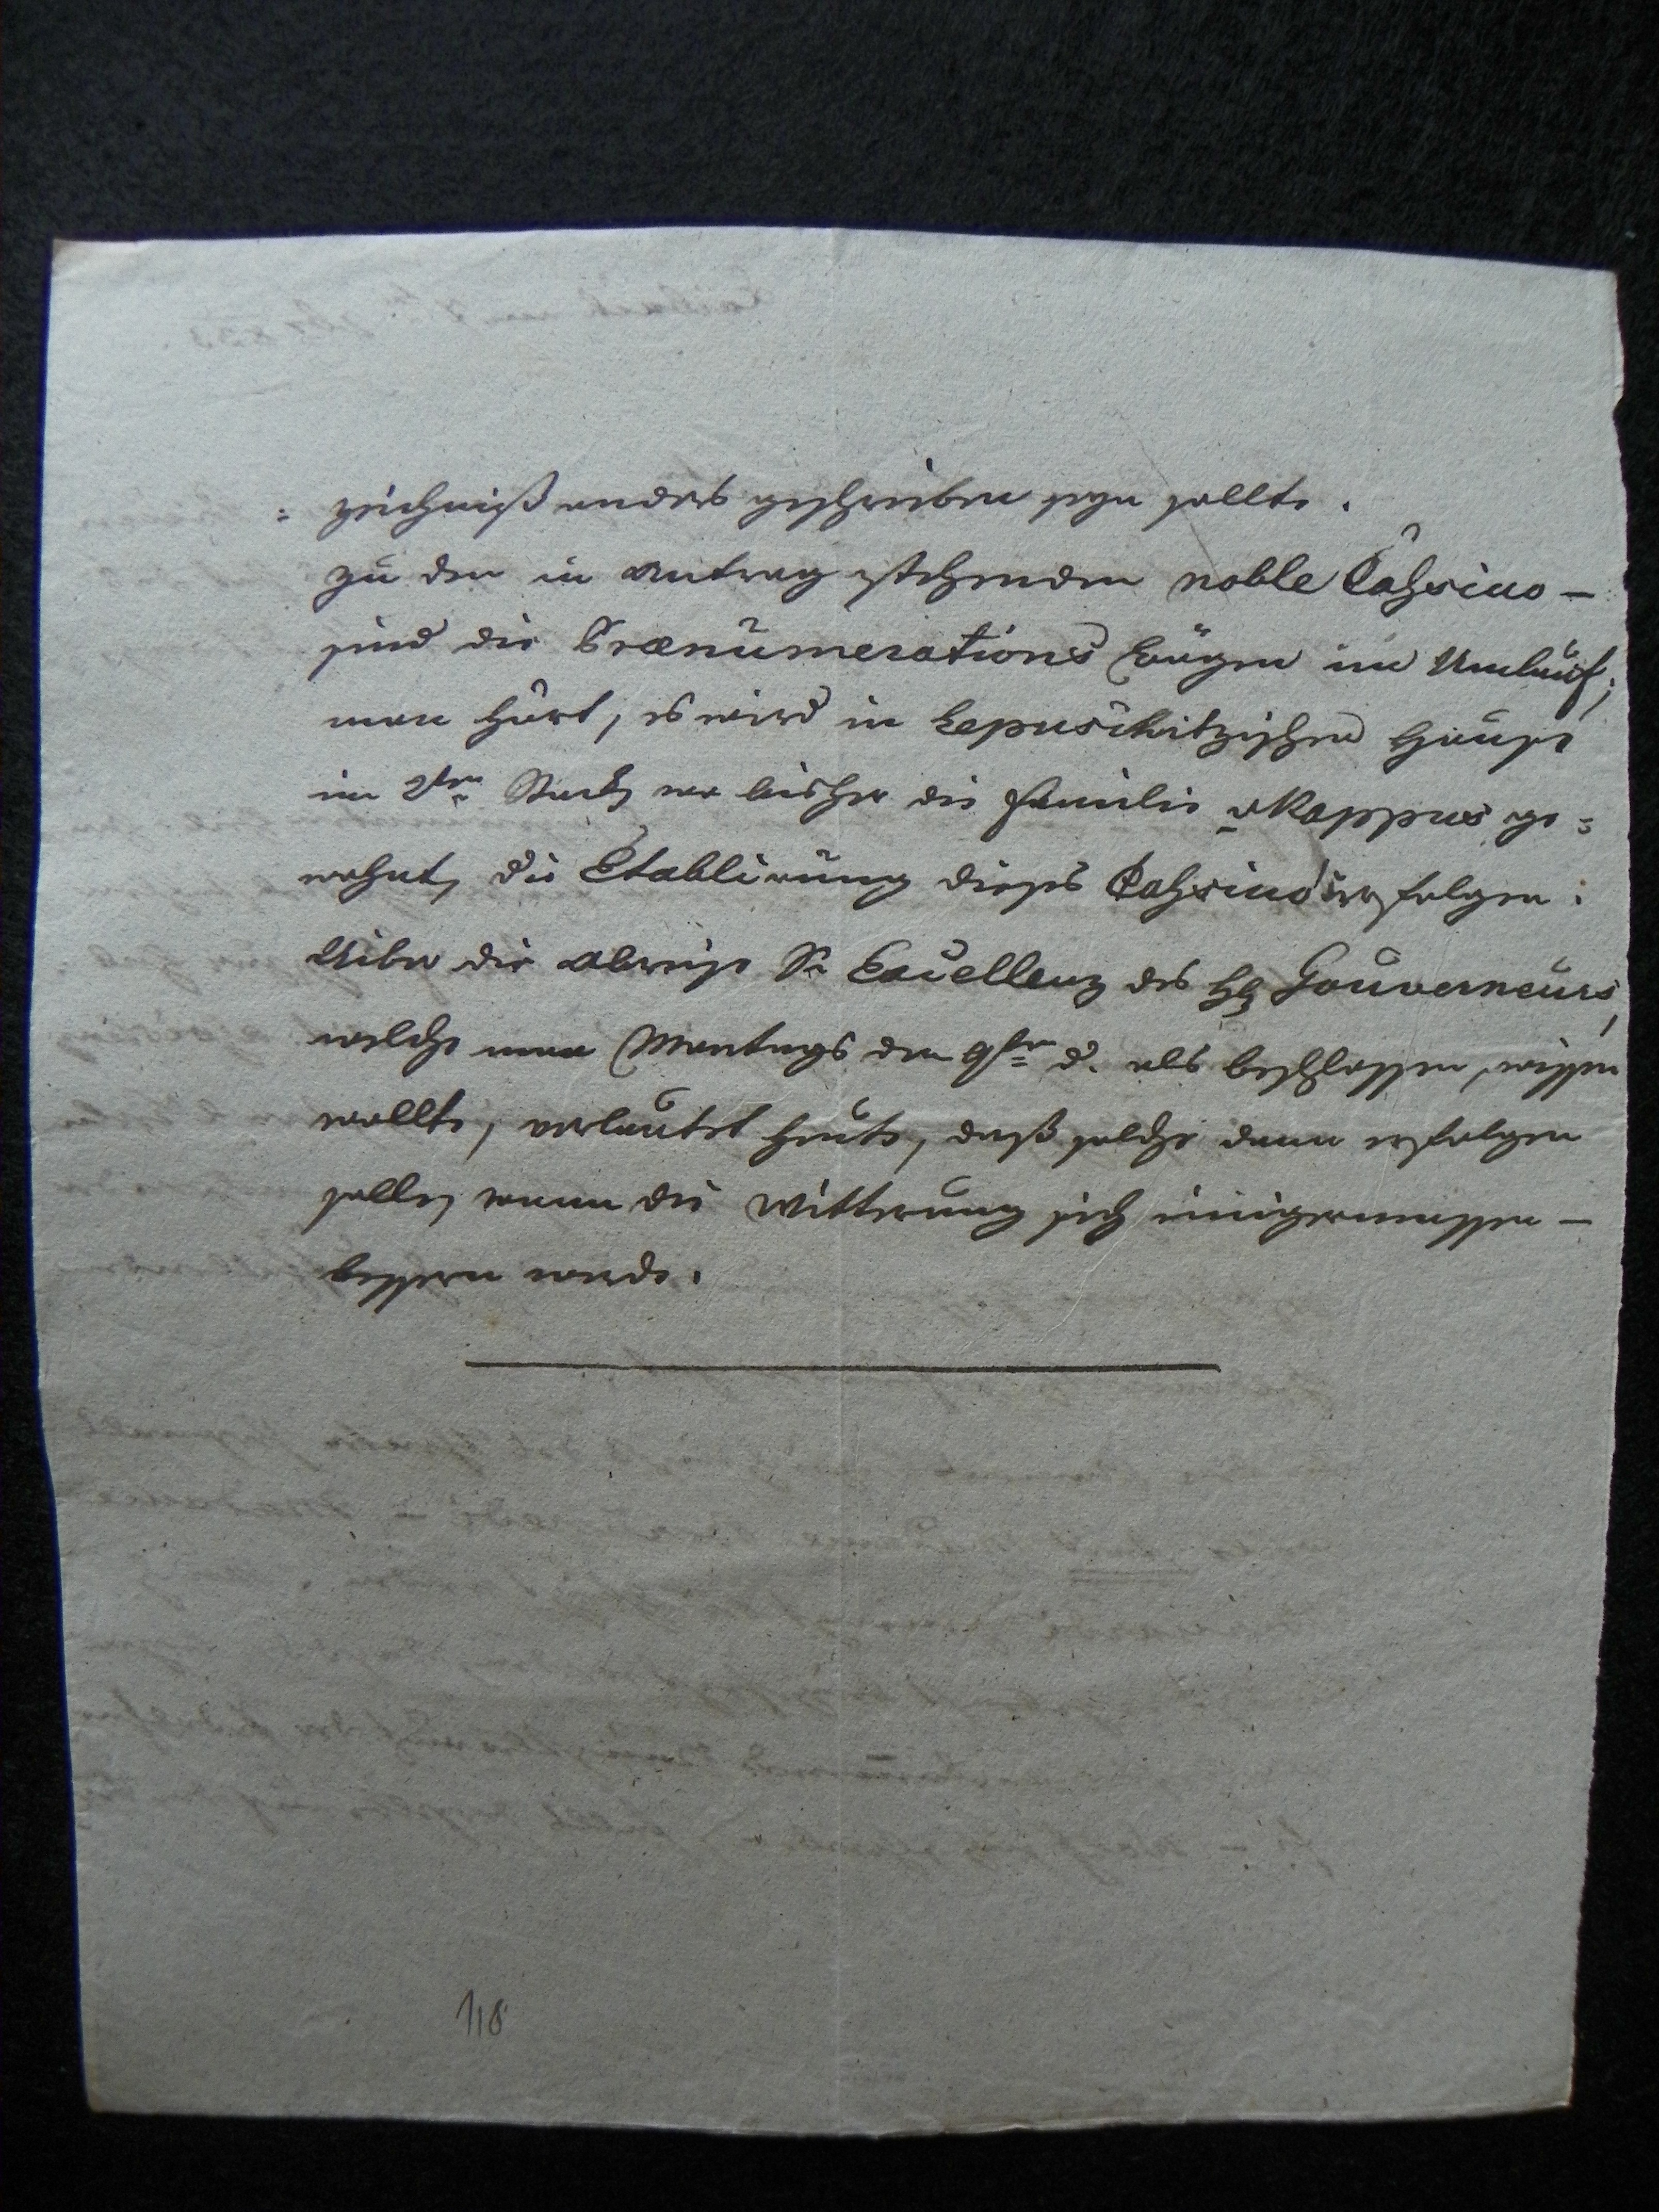 = zeichniß anders geschrieben seyn sollte.
zu den in Antrag stehenden noble Cahsino –
sind die Prænumerations bögen im Umlauf;
man hört, es wird in Lepuschitzischen Hause
im 2ten Stock, wo bisher die Familie v Kappus ge=
wohnt, die Etablirung dieses Cahsino's erfolgen.
Uiber die Abreise Sr Excellenz des H Gouverneurs,
welche man Montags den 9ten d. als beschlossen, wissen
wollte, verlautet heute, daß solche dann erfolgen
solle, wann die Witterung sich einigermassen –
bessern werde.
118